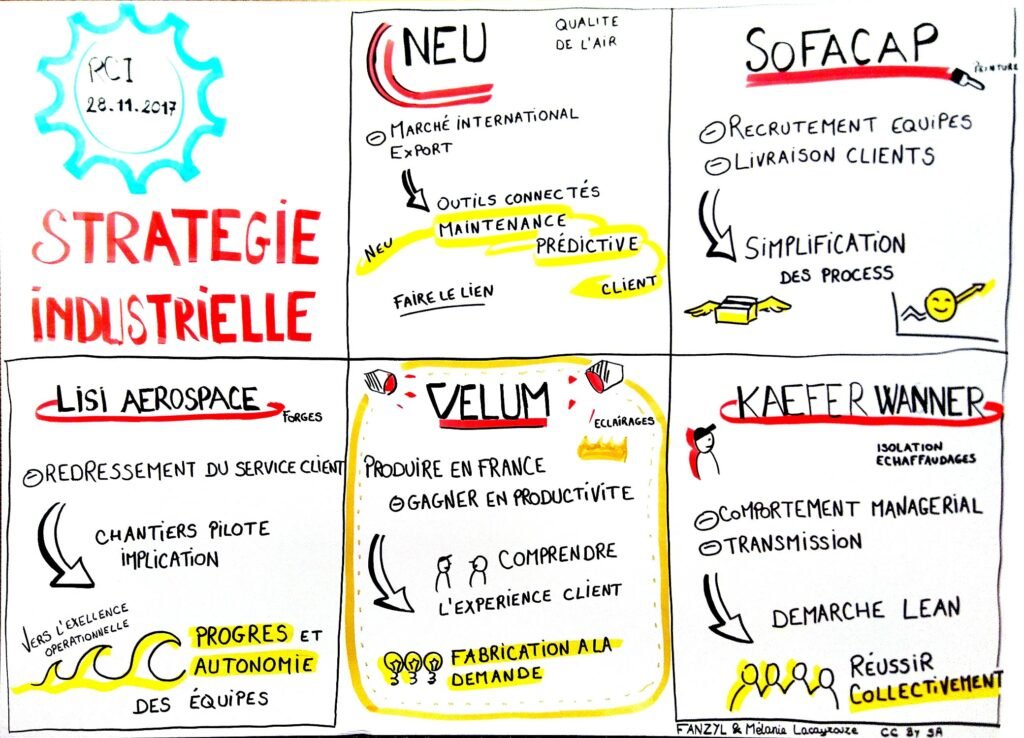 RCI
28.11.2017
STRATEGIE
INDUSTRIELLE
NEU
QUALITE
DE L'AIR
MARCHÉ INTERNATIONAL
EXPORT
OUTILS CONNECTÉS
MAINTENANCE
PRÉDICTIVE
NEU
CLIENT
FAIRE LE LIEN
SOFACAP
PEINTURE
RECRUTEMENT EQUIPES
LIVRAISON CLIENTS
SIMPLIFICATION
DES PROCESS
LISI AEROSPACE
FORGES
REDRESSEMENT DU SERVICE CLIENT
CHANTIERS PILOTE
IMPLICATION
VERS L'EXELLENCE
OPERATIONNELLE
PROGRES ET
AUTONOMIE
DES ÉQUIPES
VELUM
ECLAIRAGES
PRODUIRE EN FRANCE
GAGNER EN PRODUCTIVITE
COMPRENDRE
L'EXPERIENCE CLIENT
FABRICATION A LA
DEMANDE
KAEFER WANNER
ISOLATION
ECHAFFAUDAGES
COMPORTEMENT MANAGERIAL
TRANSMISSION
DEMARCHE LEAN
RÉUSSIR
COLLECTIVEMENT
FANZYL & Mélanie Lacayrouze CC BY SA